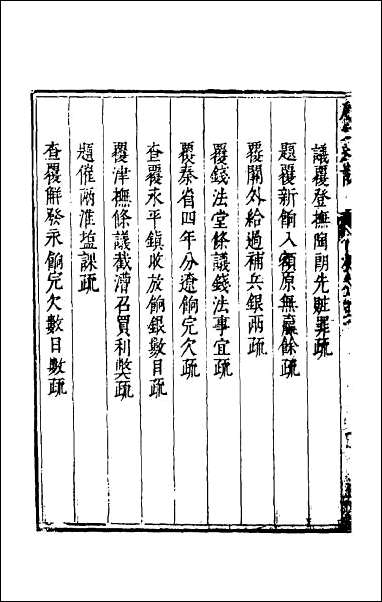 議覆登撫陶朗先贓罪疏
題覆新餉入額原無贏餘疏
覆關外給過補兵銀兩疏
覆錢法堂條議錢法事宜疏
覆秦省四年分遼餉完欠疏
查覆永平鎮收放餉銀數目疏
覆津撫條議截漕召買利獘疏
題催兩淮塩課疏
查覆解發永餉完欠數目數疏